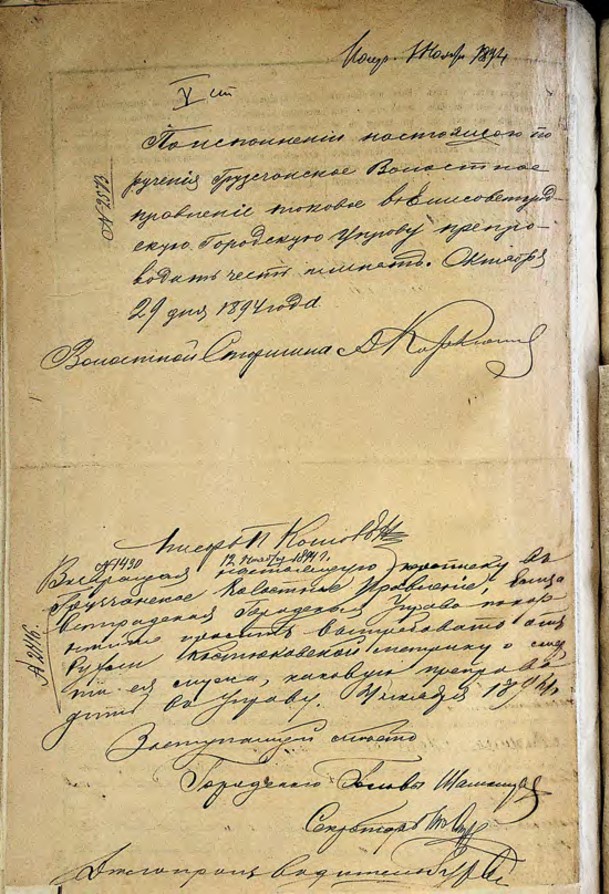 1 Ноября 1894
V
По исполнении настоящаго по
ручения Грузчанское Волостное
правление таковое в Елисоветград-
скую Городскую Управу препро-
водить честь имеет. Октября
29 дня 1894 года
№ 2573
Волостной Старшина
Писарь П
№ 1430 12 Ноября 1894 г.
Возвращая настоящую переписку в
Грузчанское Волостное Правление, Елиса
ветградская Городская Управа покор
нейше просит вытребовать от
Костюковской метрику о смер
ти ея мужа, каковую препрово
дить в Управу. Ноября 1894 г.
№ 2416
Заступающий место
Городского Головы
Секретарь
Делопроизводитель